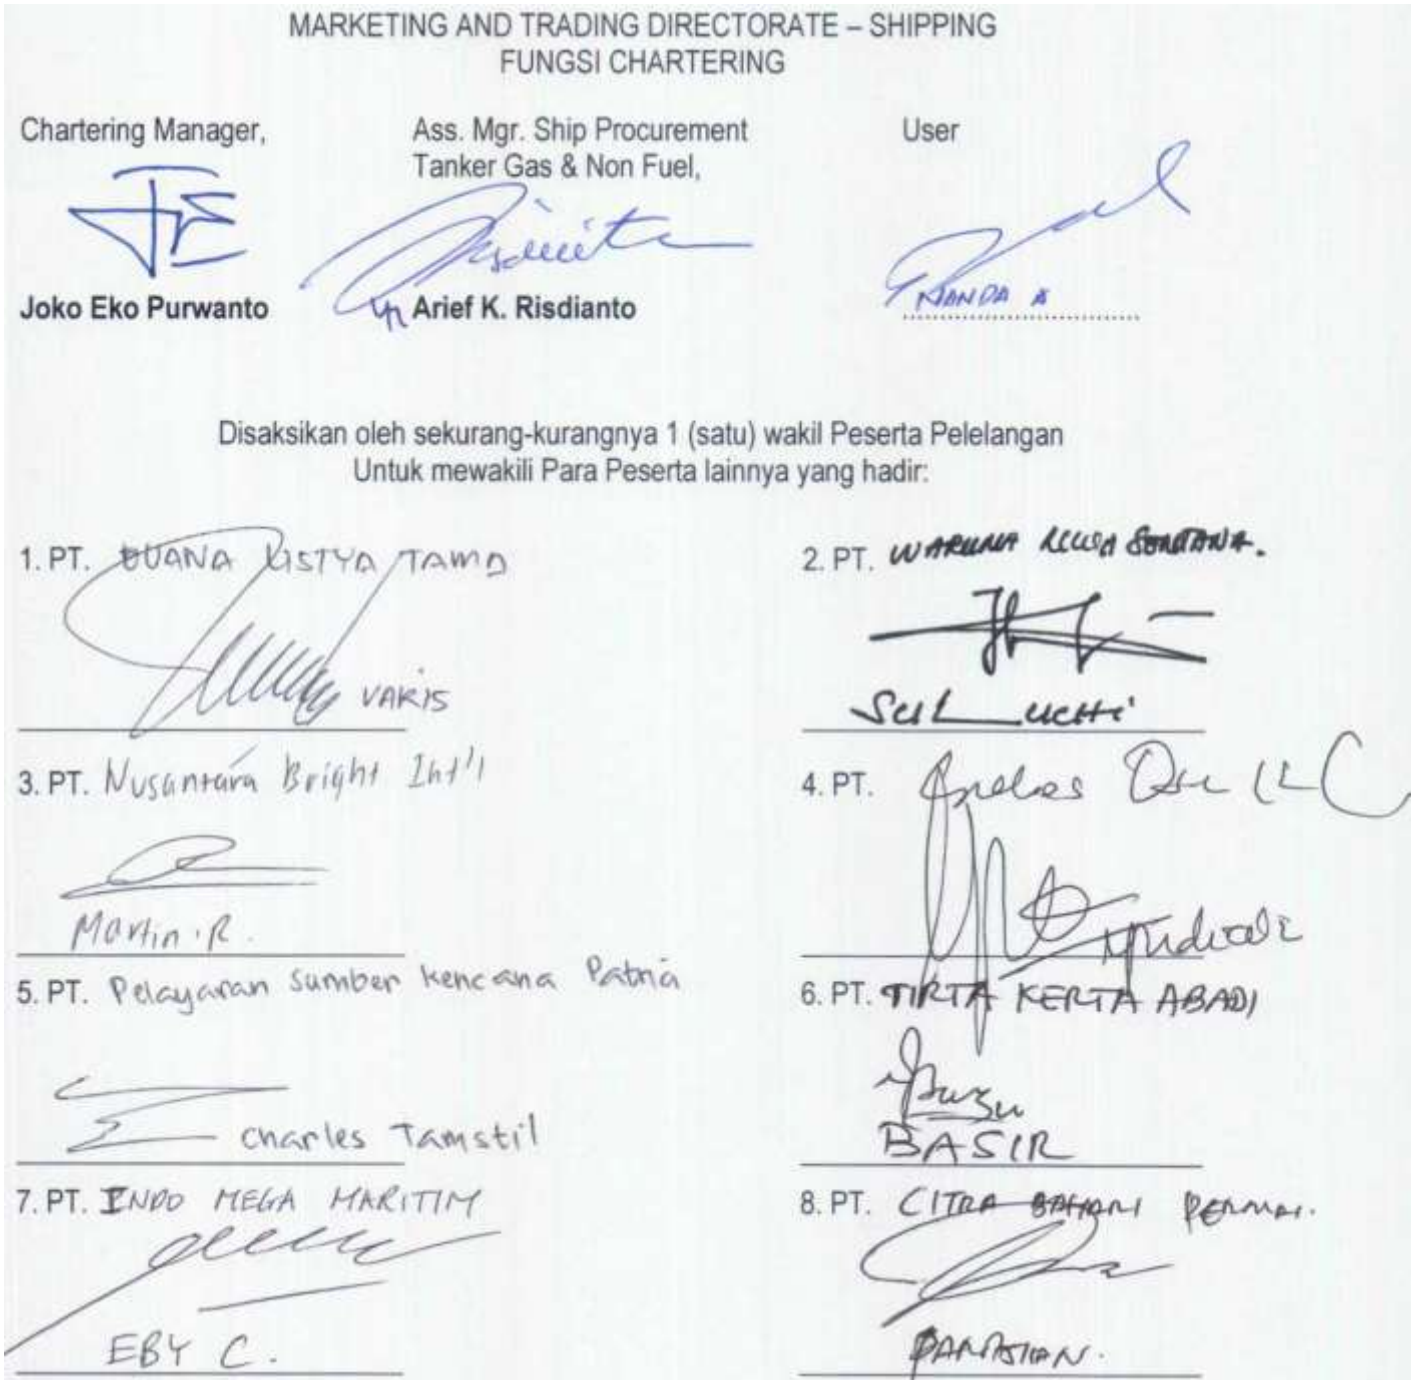 MARKETING AND TRADING DIRECTORATE – SHIPPING
FUNGSI CHARTERING
Chartering Manager,
Ass. Mgr. Ship Procurement
Tanker Gas & Non Fuel,
User
Joko Eko Purwanto
Arief K. Risdianto
NANDA A
Disaksikan oleh sekurang-kurangnya 1 (satu) wakil Peserta Pelelangan
Untuk mewakili Para Peserta lainnya yang hadir:
1. PT. BUANA LISTYA TAMA
VARIS
2. PT. WARUNA NUSA SENTANA.
3. PT. Nusantara Bright Int'l
Martin . R.
4. PT.
5. PT. Pelayaran Sumber Kencana Patria
Charles Tamstil
6. PT. TIRTA KERTA ABADI
BASIR
7. PT. INDO MEGA MARITIM
EBY C.
8. PT. CITRA BAHARI PERMAI.